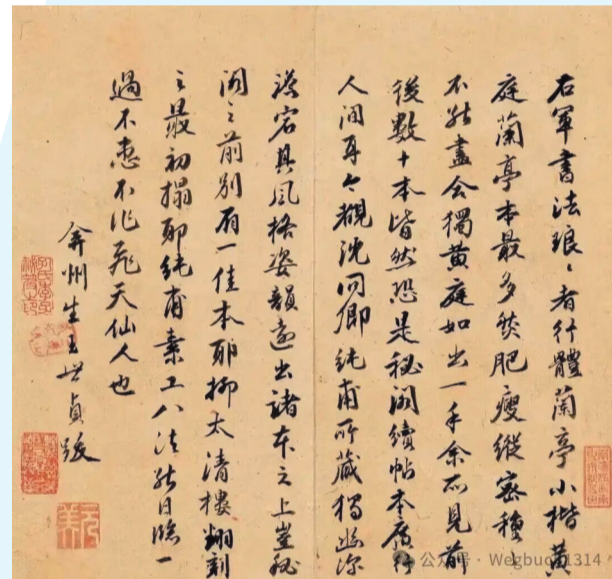 右軍書法琅琅者行體蘭亭小楷黃
庭蘭亭本最多然肥瘦縱密種種
不能盡會獨黃庭如出一手余所見前
後數十本皆然恐是秘閣續帖本廣行
人間耳今觀沈同卿純甫所藏獨幽深
淡宕具風格姿韻遠出諸本之上豈秘
閣之前別有一佳本耶抑太清樓翻刻
之最初搨耶純甫素工八法能日臨一
過不患不作飛天仙人也
弇州生王世貞跋
公众号 · Wegbuot1314